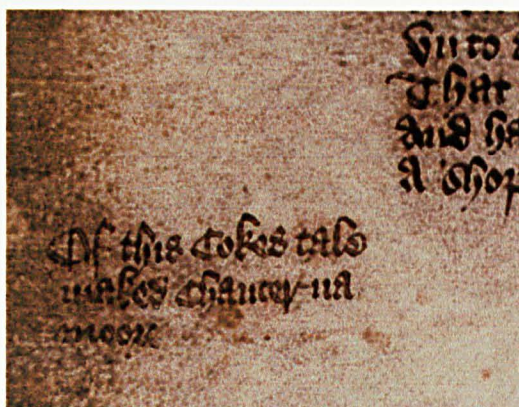 vn to
That
And ha
A shop
Of this Cokes tale
maked Chaucer na
moore